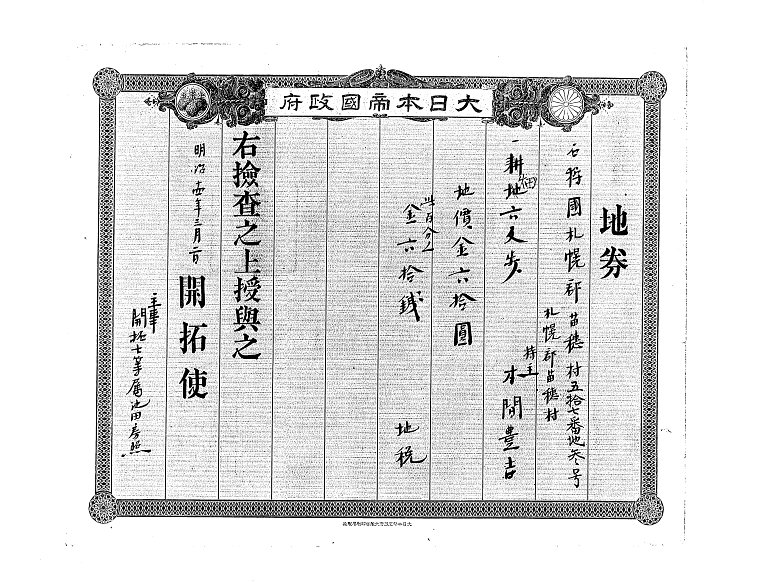 大日本帝國政府
地券
石狩國札幌郡苗穂村五拾七番地
札幌郡苗穂村
持主 本間豊吉
一耕地 畑 六
地價金六拾圓
此百分之
金六拾錢 地税
右撿査之上授與之
明治 年三月 日 開拓使
主事
開拓七等属池田